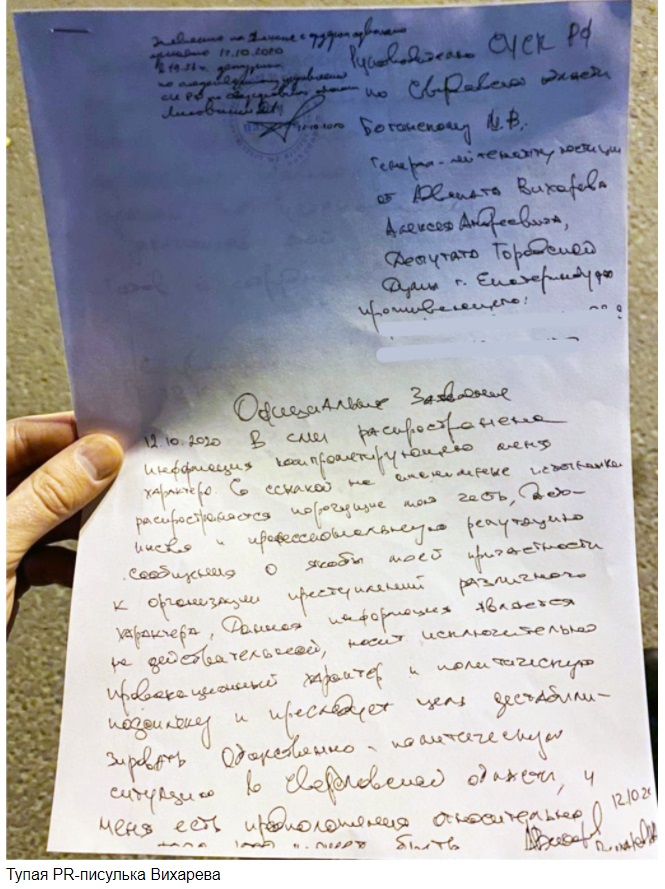 Заявление на личное с
принято 12.10.2020
в 19.
по следственному управлению
СК РФ по Свердловской области
12.10.2020
Руководителю СУСК РФ
по Свердловской области
Богданскому М.В.
Генерал-лейтенанту юстиции
от Адвоката Вихарева
Алексея Андреевича,
Депутата Городской
Думы г. Екатеринбурга
проживающего:
Официальное Заявление
12.10.2020 В СМИ распространена
информация компрометирующего меня
характера. С ссылкой на анонимные источники
распространяются порочащие мою честь, досто-
инство и профессиональную репутацию
сообщения о якобы моей причастности
к организации преступлений различного
характера, Данная информация является
не действительной, носит исключительно
провокационный характер и политическую
подоплёку и преследует цель дестабили-
зировать общественно-политическую
ситуацию в Свердловской области, у
меня есть предположения относительно
12.10.20
может быть
Тупая PR-писулька Вихарева